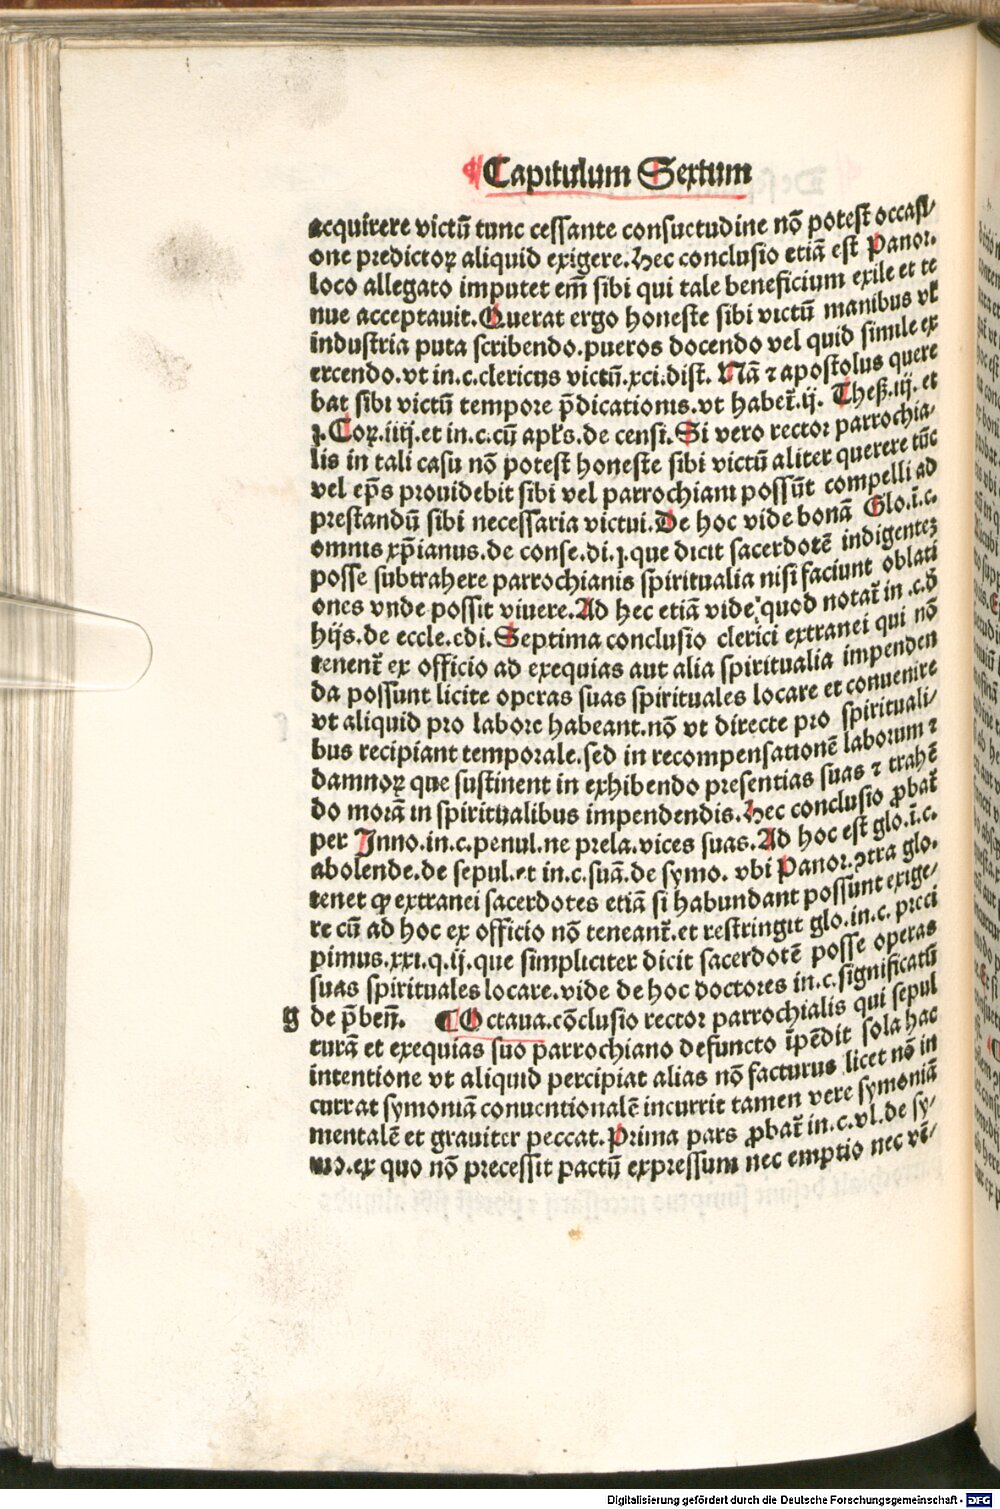 ¶Capitulum Sextum
acquirere victū tunc cessante consuetudine nō potest occasi/
one predictoꝝ aliquid exigere. Hec conclusio etiā est Panor.
loco allegato imputet em̄ sibi qui tale beneficium exile et te
nue acceptauit. Querat ergo honeste sibi victū manibus vl̓
industria puta scribendo. pueros docendo vel quid simile ex
ercendo. vt in. c. clericus victū. xci. dist. Nā ⁊ apostolus quere
bat sibi victū tempore p̄dicationis. vt habet̄. ij. Theß. iij. et
j. Coꝝ. iiij. et in. c. cū apl̓s. de censi. Si vero rector parrochia/
lis in tali casu nō potest honeste sibi victū aliter querere tūc
vel ep̄s prouidebit sibi vel parrochiam possūt compelli ad
prestandū sibi necessaria victui. De hoc vide bonā Glo. ī. c.
omnis xp̄ianus. de conse. di. j. que dicit sacerdotē indigentez
posse subtrahere parrochianis spiritualia nisi faciunt oblati
ones vnde possit viuere. Ad hec etiā vide quod notat̄ in. c. d̄
hijs. de eccle. edi. Septima conclusio clerici extranei qui nō
tenent̄ ex officio ad exequias aut alia spiritualia impenden
da possunt licite operas suas spirituales locare et conuenire
vt aliquid pro labore habeant. nō vt directe pro spirituali/
bus recipiant temporale. sed in recompensationē laborum ⁊
damnoꝝ que sustinent in exhibendo presentias suas ⁊ trahē
do morā in spiritualibus impendendis. Hec conclusio ꝓbat̄
per Inno. in. c. penul. ne prela. vices suas. Ad hoc est glo. ī. c.
abolende. de sepul. et in. c. suā. de symo. vbi Panor. ꝯtra glo.
tenet ꝙ extranei sacerdotes etiā si habundant possunt exige/
re cū ad hoc ex officio nō teneant̄. et restringit glo. in. c. preci
pimus. xxi. q. ij. que simpliciter dicit sacerdotē posse operas
suas spirituales locare. vide de hoc doctores in. c. significatū
g de p̄ben̄. ¶Octaua. cōclusio rector parrochialis qui sepul
turā et exequias suo parrochiano defuncto īpēdit sola hac
intentione vt aliquid percipiat alias nō facturus licet nō in
currat symoniā conuentionalē incurrit tamen vere symoniā
mentalē et grauiter peccat. Prima pars ꝓbat̄ in. c. vl. de sy/
mo. ex quo nō precessit pactū expressum nec emptio nec vē/
Digitalisierung gefördert durch die Deutsche Forschungsgemeinschaft - DFG